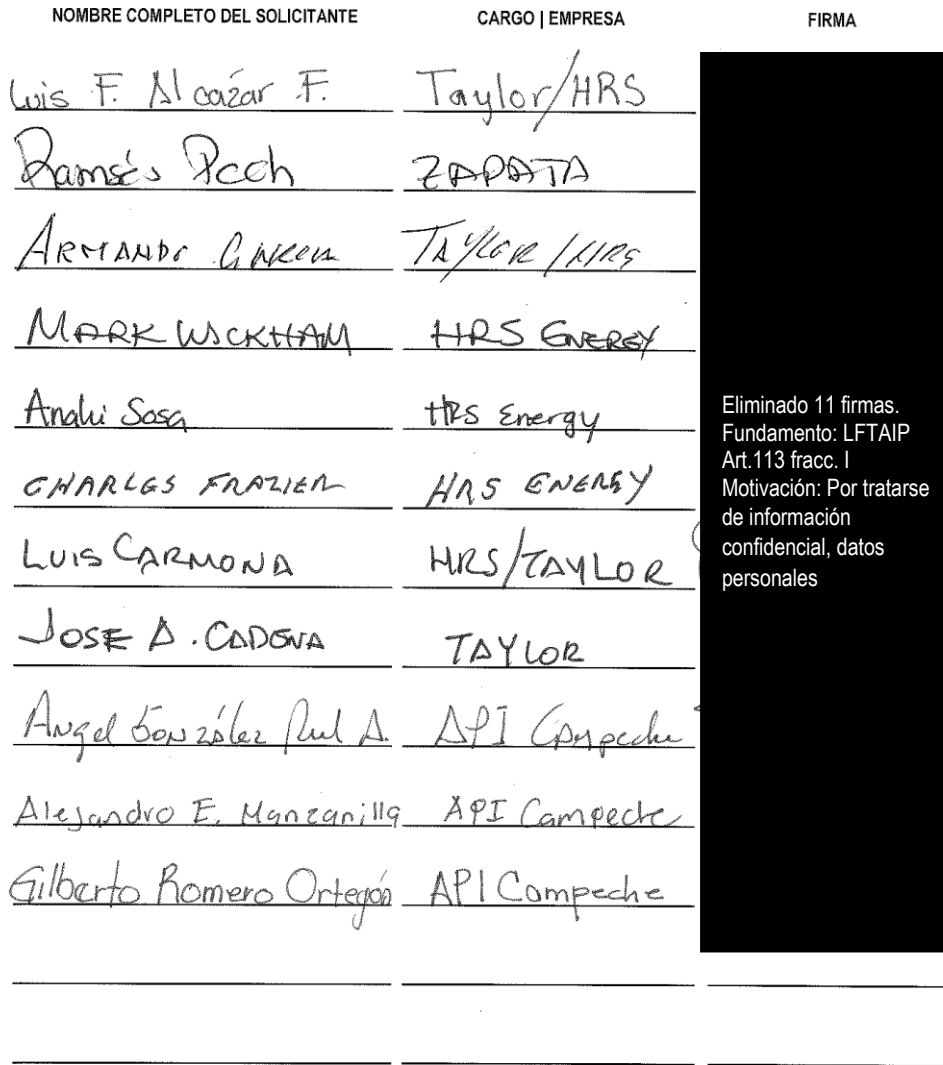 NOMBRE COMPLETO DEL SOLICITANTE CARGO | EMPRESA FIRMA
Luis F. Alcazár F. Taylor/HRS
Ramsés Pech ZAPATA
ARMANDO GARCIA TAYLOR/HRS
MARK WICKHAM HRS ENERGY
Anahi Sosa HRS Energy
CHARLES FRAZIER HRS ENERGY
LUIS CARMONA HRS/TAYLOR
JOSE A. CADENA TAYLOR
Angel González Rul A. API Campeche
Alejandro E. Manzanilla API Campeche
Gilberto Romero Ortegón API Campeche
Eliminado 11 firmas.
Fundamento: LFTAIP
Art.113 fracc. I
Motivación: Por tratarse
de información
confidencial, datos
personales